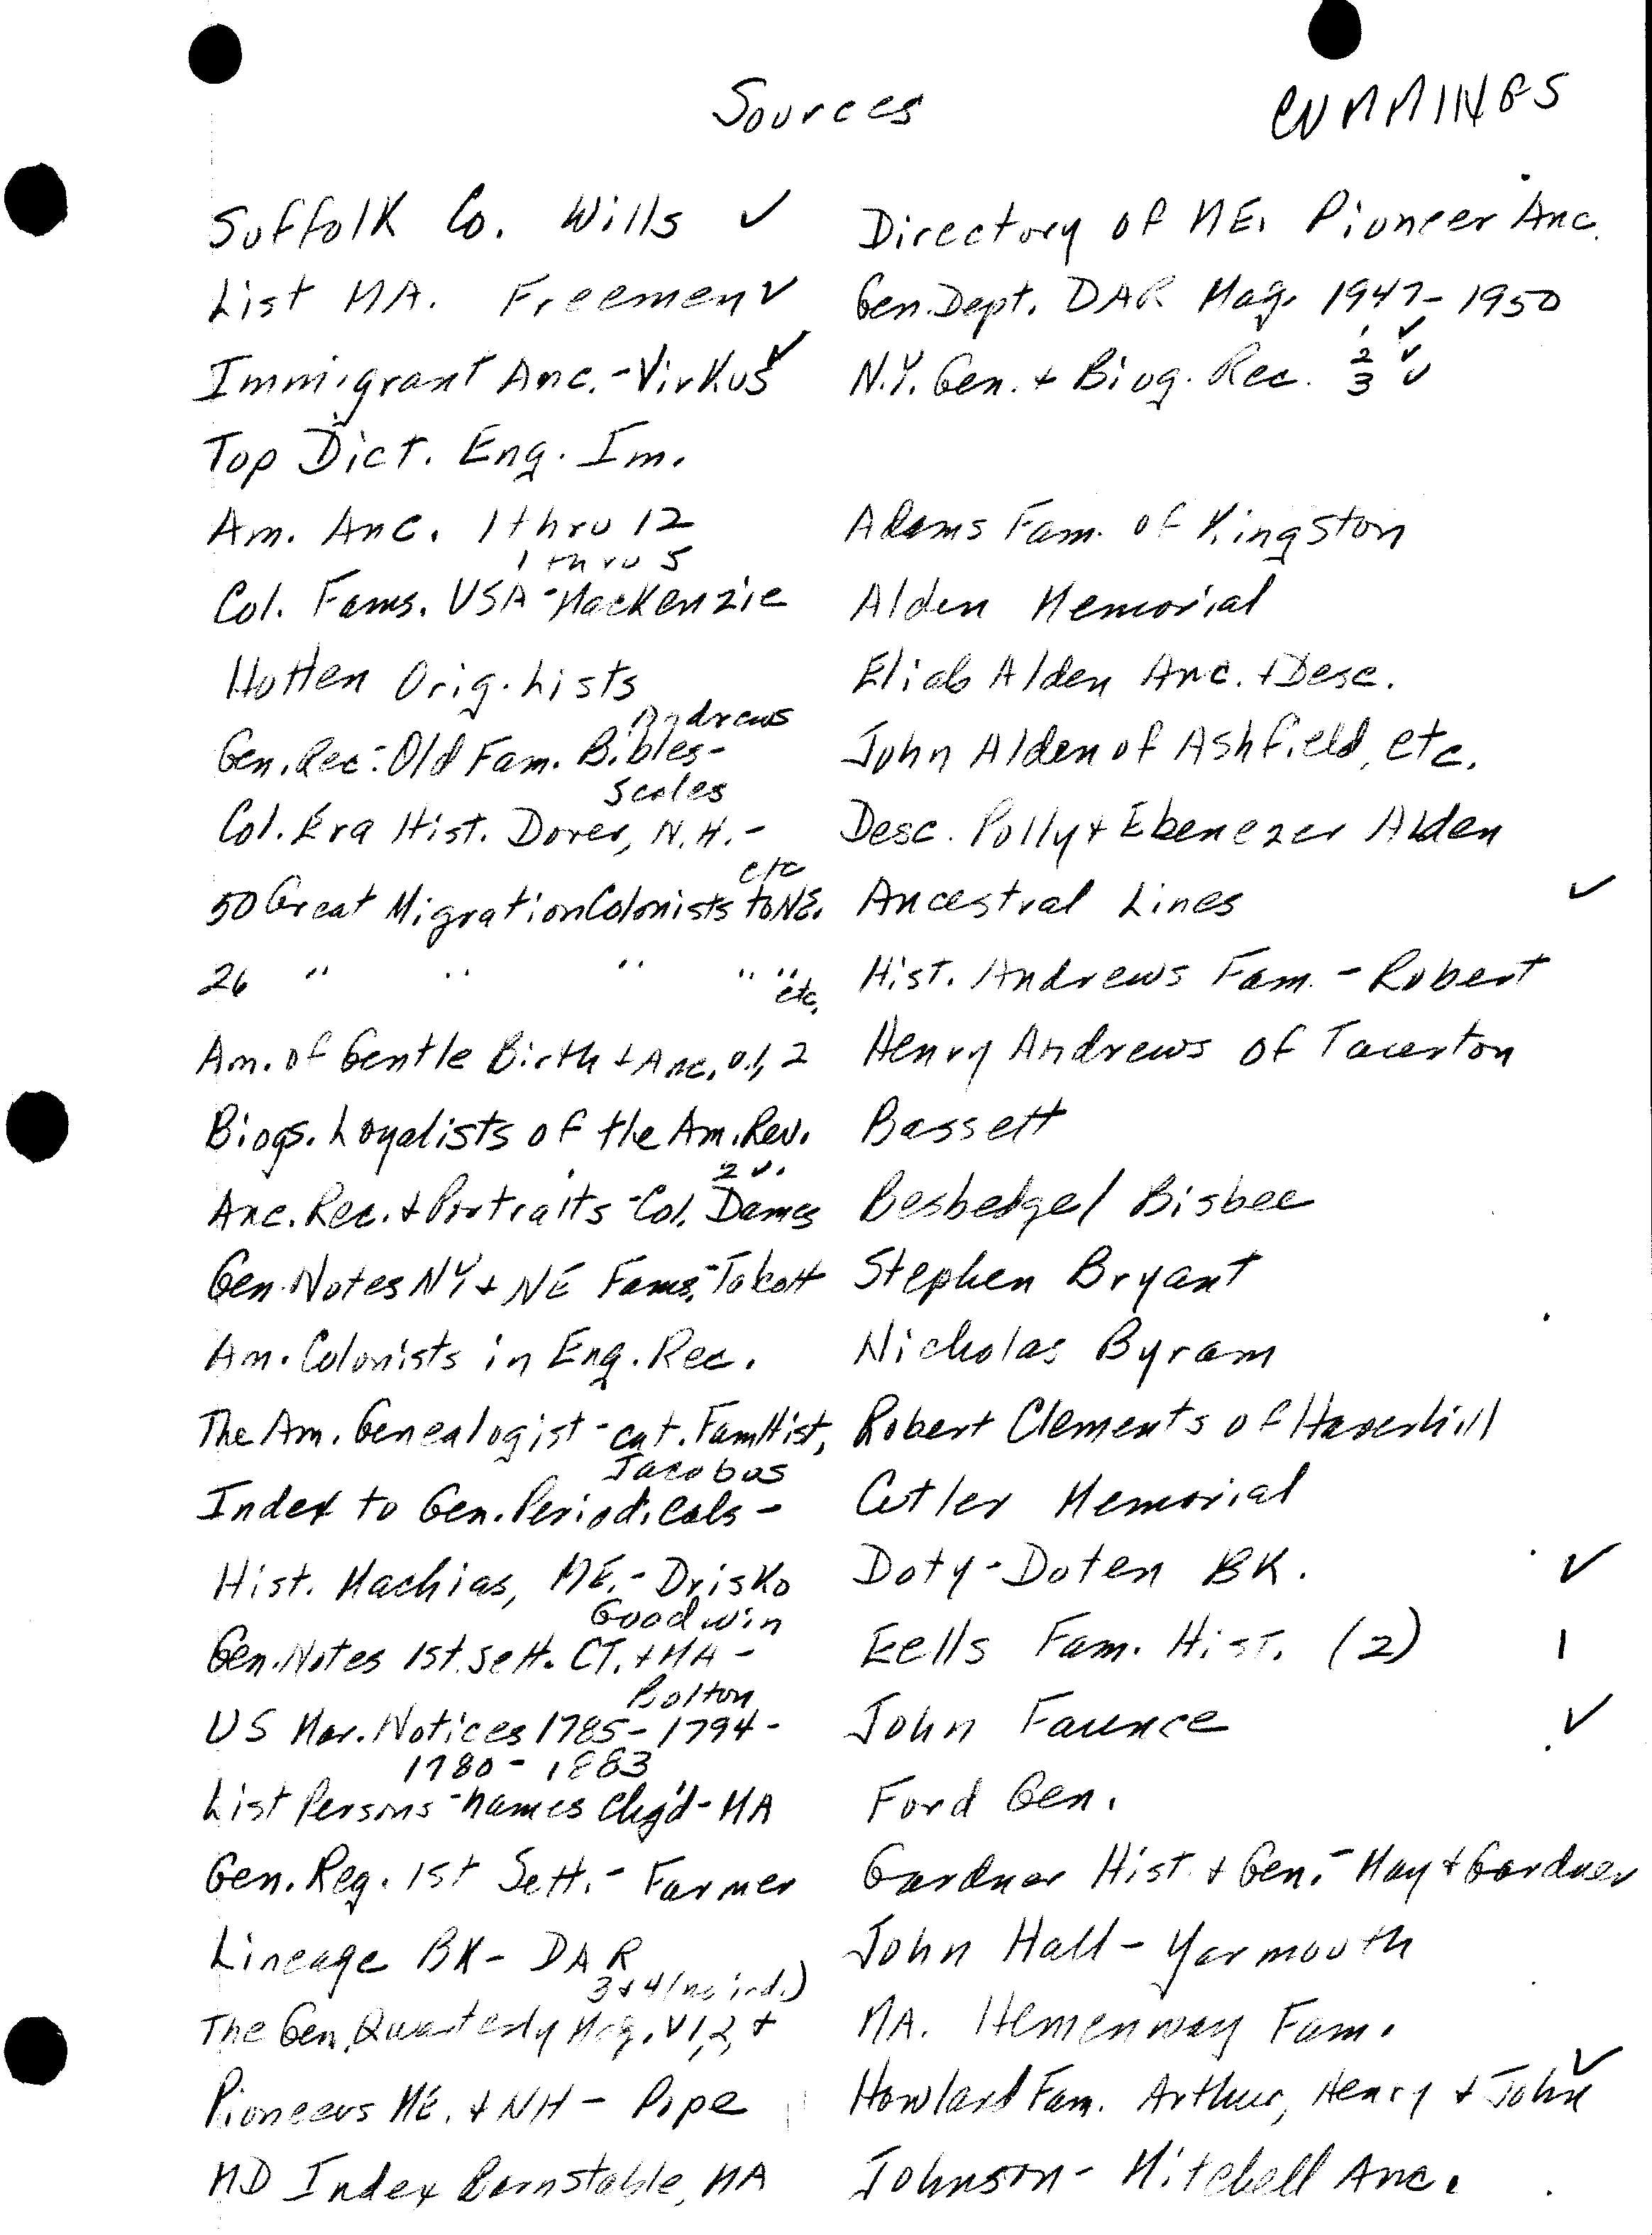 Sources
CUMMINGS
Suffolk Co. Wills ✓
List MA. Freemen ✓
Immigrant Anc. - Virkus ✓
Top Dict. Eng. Im.
Am. Anc. 1 thru 12
1 thru 5
Col. Fams. USA - Mackenzie
Hotten Orig. Lists
Andrews
Gen. Rec: Old Fam. Bibles -
Scales
Col. Era Hist. Dover, N.H. -
etc
50 Great Migration Colonists to NE.
26 " " " " "
etc.
Am. of Gentle Birth + Anc. v.1, 2
Biogs. Loyalists of the Am. Rev.
2 v.
Anc. Rec. + Portraits - Col. Dames
Gen. Notes NY + NE Fams. - Talcott
Am. Colonists in Eng. Rec.
The Am. Genealogist - cat. Fam Hist,
Jacobus
Index to Gen. Periodicals -
Hist. Machias, ME. - Drisko
Goodwin
Gen. Notes 1st. Sett. CT. + MA -
Bolton
US Mar. Notices 1785 - 1794 -
1780 - 1883
List Persons - names chg'd - MA
Gen. Reg. 1st Sett. - Farmer
Lineage BK - DAR
3 + 4 (no ind.)
The Gen. Quarterly Mag. V 1, 2, +
Pioneers ME. + NH - Pope
MD Index Barnstable, MA
Directory of ME. Pioneer Anc.
Gen. Dept. DAR Mag. 1947 - 1950
1 ✓
2 ✓
N.Y. Gen. + Biog. Rec. 3 ✓
Adams Fam. of Kingston
Alden Memorial
Eliab Alden Anc. + Desc.
John Alden of Ashfield, etc.
Desc. Polly + Ebenezer Alden
Ancestral Lines ✓
Hist. Andrews Fam. - Robert
Henry Andrews of Taunton
Bassett
Besbedge / Bisbee
Stephen Bryant
Nicholas Byram
Robert Clements of Haverhill
Cutler Memorial
Doty - Doten BK. ✓
Eells Fam. Hist. (2) 1
John Faunce ✓
Ford Gen.
Gardner Hist. + Gen. - May + Gardner
John Hall - Yarmouth
MA. Hemenway Fam.
Howland Fam. Arthur, Henry + John ✓
Johnson - Mitchell Anc.